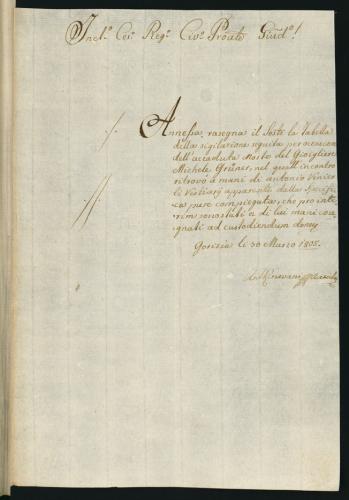 Incl.º Ces.º Reg.º Civ.º Prov.le Giud.º!
Annessa rasegna il Sosto la Tabella
della sigilazione seguita per occasion
dell'accaduta Morte del Gioiglier
Michele Grüner, nel qual'incontro
ritrovò a mani di Antonio Vinier
li Vestiarij apparenti dalla Specifi
ca pure compiegata, che pro inte
rim sono stati a di lui mani con
gnati ad custodiendum
Gorizia li 30 Marzo 1805.